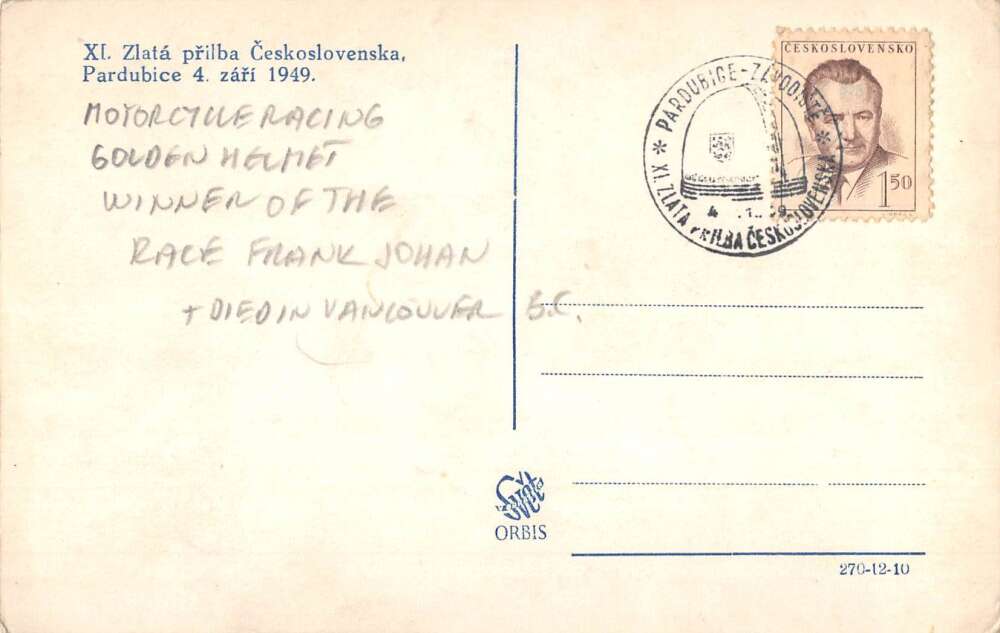 XI. Zlatá přilba Československa,
Pardubice 4. září 1949.
MOTORCYCLE RACING
GOLDEN HELMET
WINNER OF THE
RACE FRANK JOHAN
+ DIED IN VANCOUVER B.C.
ČESKOSLOVENSKO
1 50
PARDUBICE-ZÁVODIŠTĚ
* XI. ZLATÁ PŘILBA ČESKOSLOVENSKA *
Svět
ORBIS
270-12-10